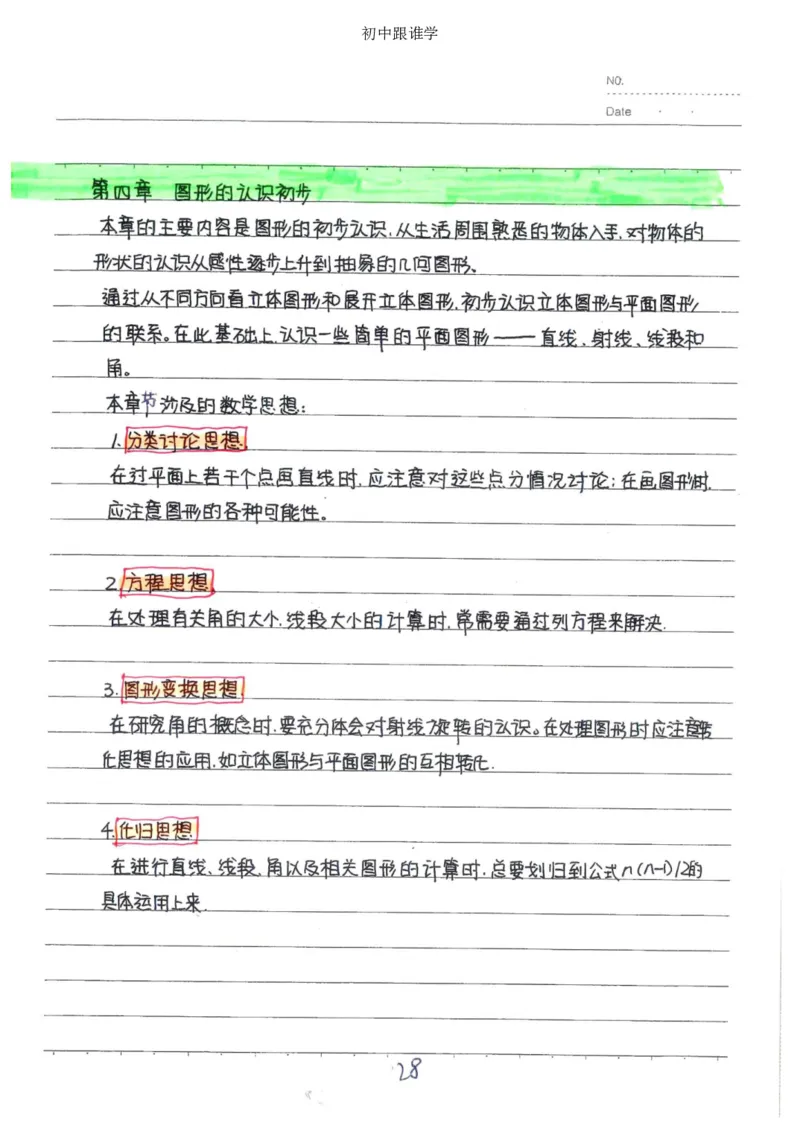 初中跟谁学
NO.
Date
第四章 图形的认识初步
本章的主要内容是图形的初步认识,从生活周围熟悉的物体入手,对物体的
形状的认识从感性逐步上升到抽象的几何图形。
通过从不同方向看立体图形和展开立体图形,初步认识立体图形与平面图形
的联系。在此基础上,认识一些简单的平面图形——直线、射线、线段和
角。
本章节涉及的数学思想:
1.分类讨论思想.
在过平面上若干个点画直线时,应注意对这些点分情况讨论;在画图形时,
应注意图形的各种可能性。
2.方程思想.
在处理有关角的大小,线段大小的计算时,常需要通过列方程来解决.
3.图形变换思想.
在研究角的概念时,要充分体会对射线旋转的认识。在处理图形时应注意转
化思想的应用,如立体图形与平面图形的互相转化.
4.化归思想.
在进行直线、线段、角以及相关图形的计算时,总要划归到公式n(n-1)/2的
具体运用上来.
28